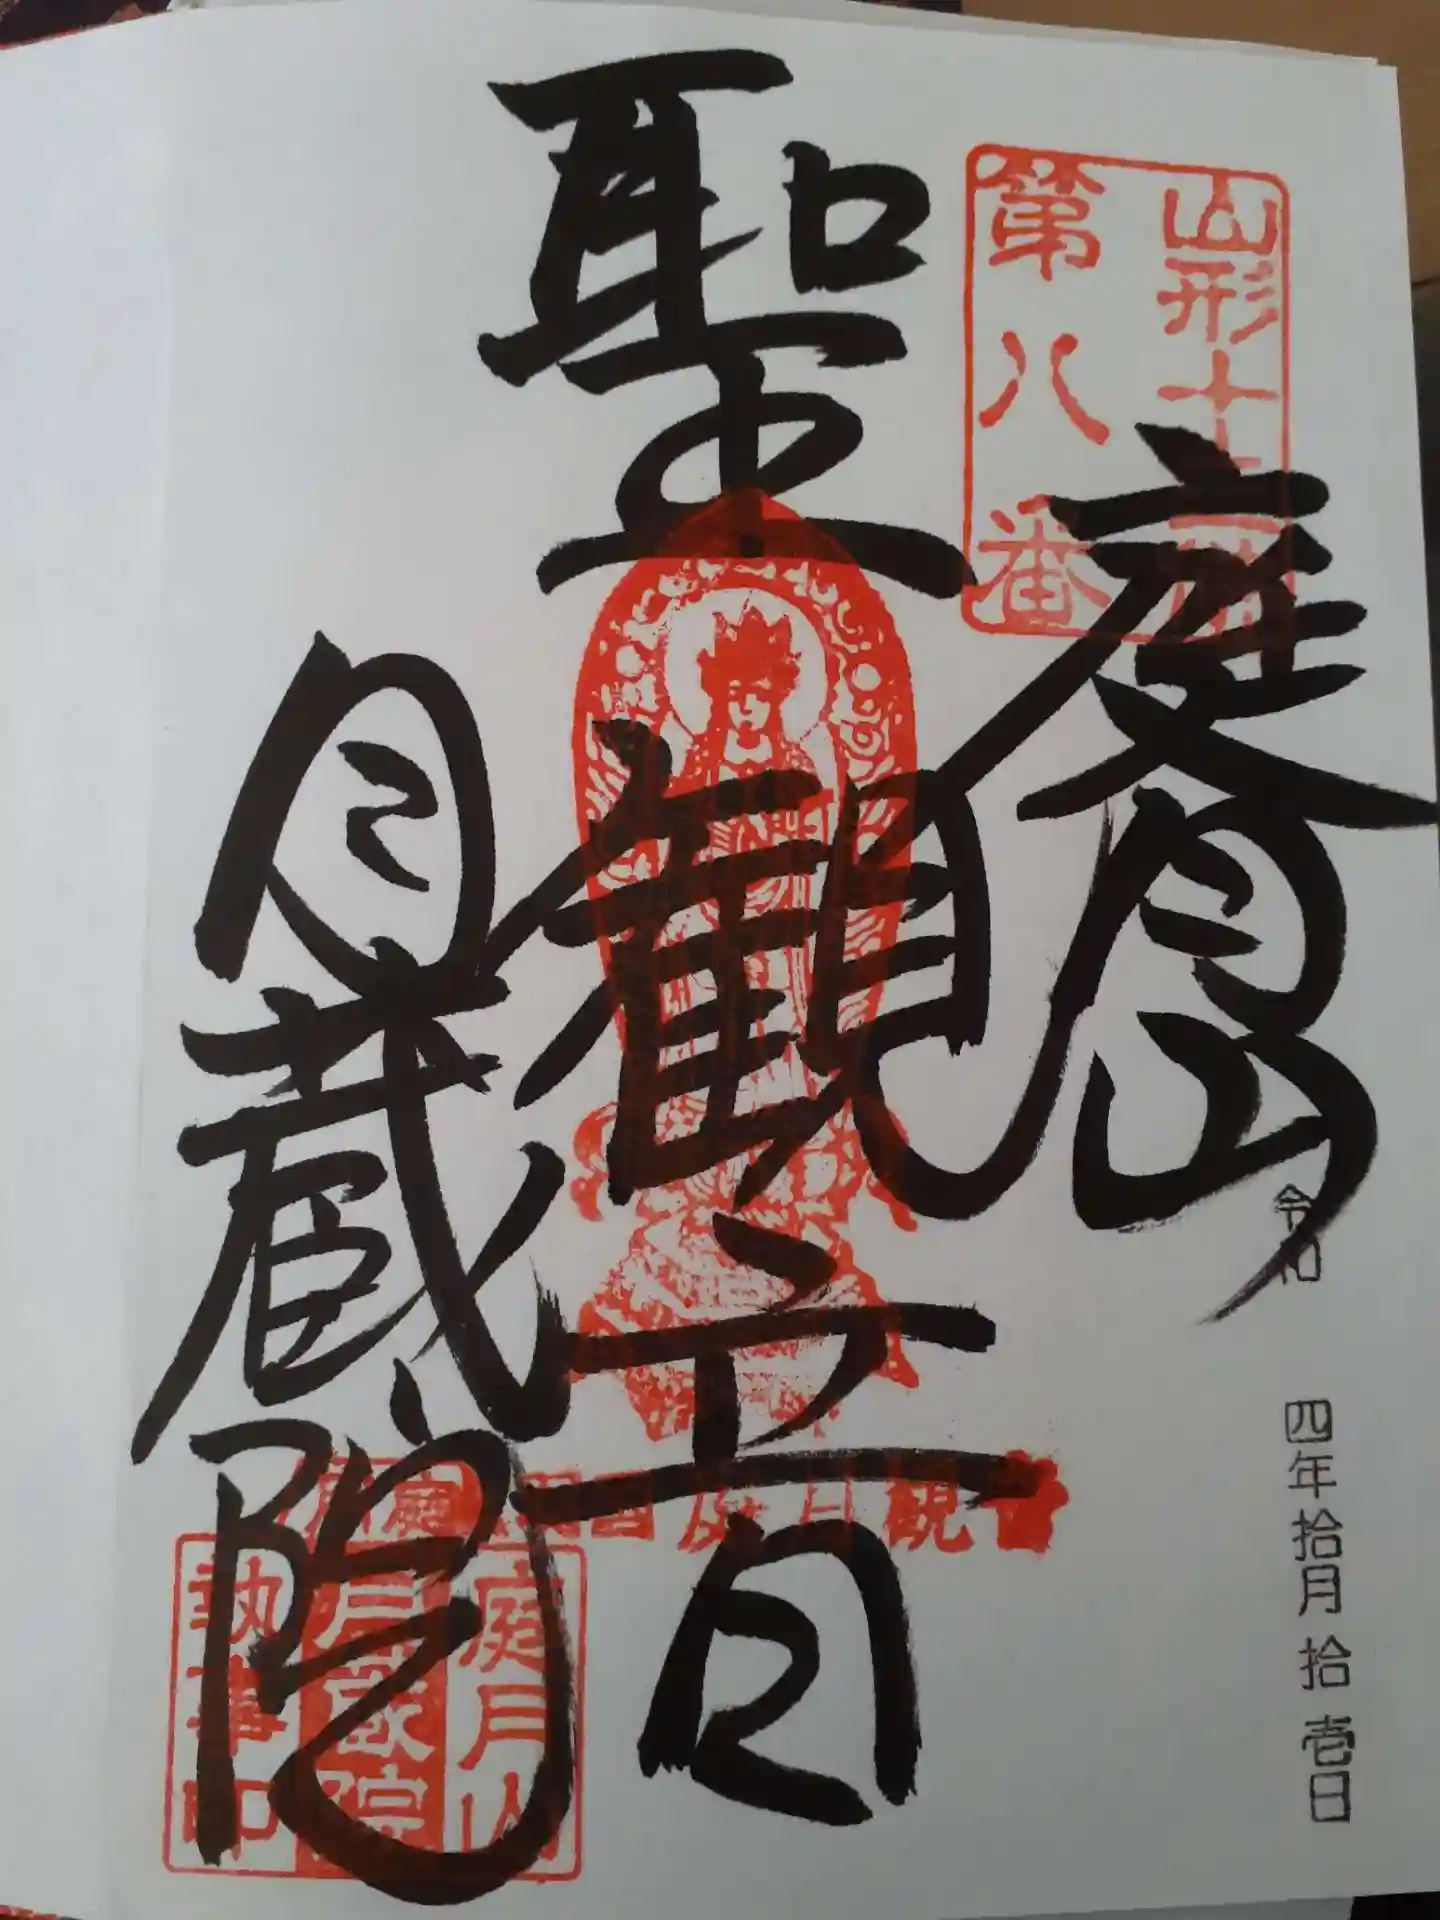 山形十
第八番
庭月山
聖観音
月蔵院
令和四年拾月拾壱日
庭月観音
庭月山
月蔵院
執事印